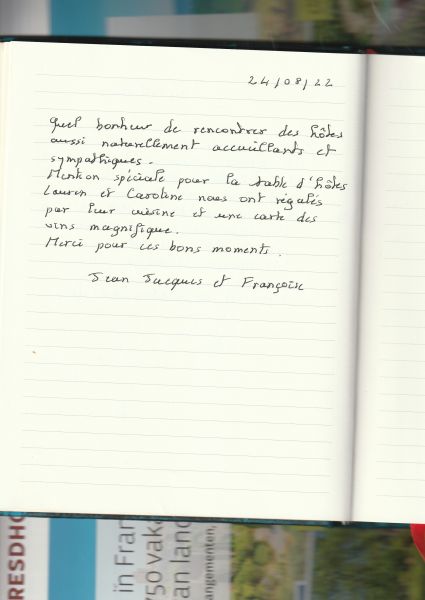 24/08/22
Quel bonheur de rencontrer des hôtes
aussi naturellement accueillants et
sympathiques.
Mention spéciale pour la table d'hôtes
Lauren et Caroline nous ont régalés
par leur cuisine et une carte des
vins magnifique.
Merci pour ces bons moments.
Jean Jacques et Françoise
RESDHO
in Fran
750 vaka
an land
angementen,